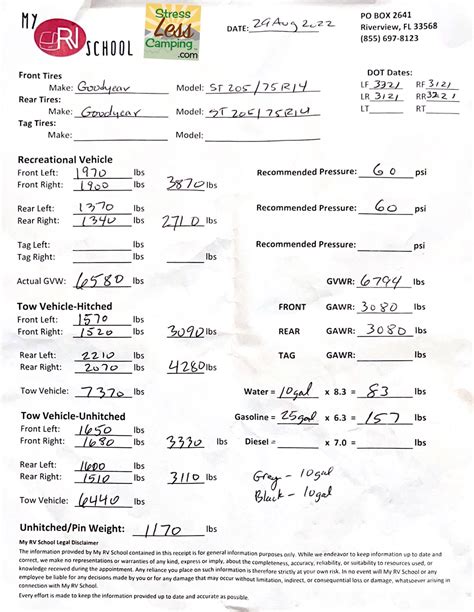 MY RV SCHOOL
Stress Less Camping .com
DATE: 29 Aug 2022
PO BOX 2641
Riverview, FL 33568
(855) 697-8123
Front Tires
Make: Goodyear Model: ST 205/75R14
Rear Tires:
Make: Goodyear Model: ST 205/75R14
Tag Tires:
Make: Model:
DOT Dates:
LF 3221 RF 3121
LR 3121 RR 3221
LT RT
Recreational Vehicle
Front Left: 1970 lbs
Front Right: 1900 lbs 3870 lbs Recommended Pressure: 60 psi
Rear Left: 1370 lbs
Rear Right: 1340 lbs 2710 lbs Recommended Pressure: 60 psi
Tag Left: lbs
Tag Right: lbs lbs Recommended Pressure: psi
Actual GVW: 6580 lbs GVWR: 6794 lbs
Tow Vehicle-Hitched
Front Left: 1570 lbs FRONT GAWR: 3080 lbs
Front Right: 1520 lbs 3090 lbs REAR GAWR: 3080 lbs
Rear Left: 2210 lbs TAG GAWR: lbs
Rear Right: 2070 lbs 4280 lbs
Tow Vehicle: 7370 lbs Water = 10gal x 8.3 = 83 lbs
Tow Vehicle-Unhitched Gasoline = 25gal x 6.3 = 157 lbs
Front Left: 1650 lbs
Front Right: 1680 lbs 3330 lbs Diesel = x 7.0 = lbs
Rear Left: 1600 lbs
Rear Right: 1510 lbs 3110 lbs Grey - 10gal
Tow Vehicle: 6440 lbs Black - 10gal
Unhitched/Pin Weight: 1170 lbs
My RV School Legal Disclaimer
The information provided by My RV School contained in this receipt is for general information purposes only. While we endeavor to keep information up to date and
correct, we make no representations or warranties of any kind, express or imply, about the completeness, accuracy, reliability, or suitability to availability resources used, or
knowledge received during the appointment. Any reliance you place on such information is therefore strictly at your own risk. In no event will My RV School or any
employee be liable for any decisions made by you or for any damage that may occur without limitation, indirect, or consequential loss or damage, whatsoever arising in
connection with My RV School.
Every effort is made to keep the information provided to customer to be up to date and correct.